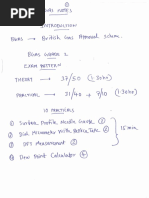 ①
NOTES
INTRODUCTION
BGAS → British Gas Approval Scheme.
BGAS GRADE 2
EXAM PATTERN
THEORY → 37/50 (1.30hr)
PRACTICAL → 21/40 → 7/10 (1.30hr)
10 PRACTICALS
① Surface Profile Needle Gauge ②
② Dial Micrometer With Replica Tape ②
③ DFT Measurement ②
④ Dew Point Calculator ④
15 min